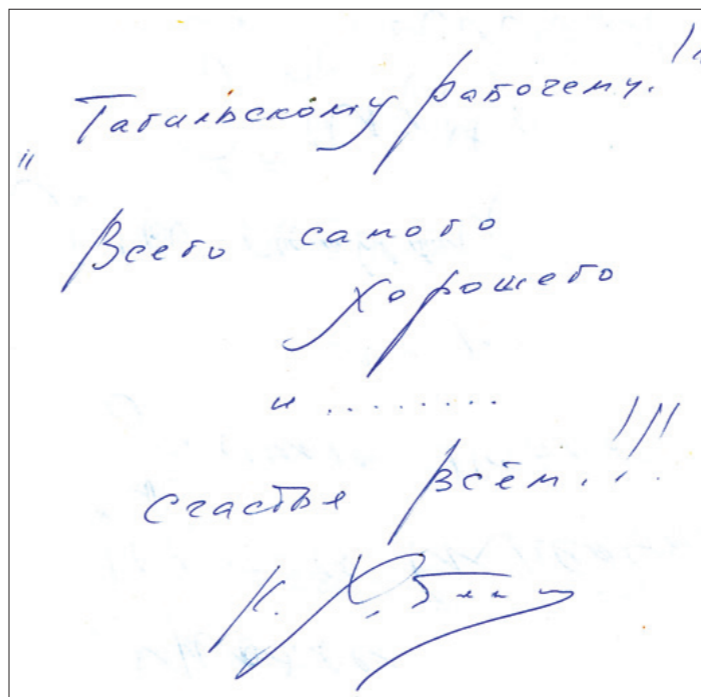 „Тагильскому рабочему."
Всего самого
хорошего
и ........
счастья всем.!!!
К.